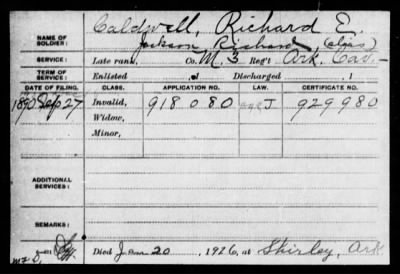 NAME OF SOLDIER: Caldwell, Richard E.
Jackson, Richard, (alias)
SERVICE: Late rank, Co. M. 3 Reg't Ark. Cav.
TERM OF SERVICE: Enlisted , 1 Discharged , 1
DATE OF FILING. CLASS. APPLICATION NO. LAW. CERTIFICATE NO.
1890 Sep 27 Invalid, 918 080 J 929 980
Widow,
Minor,
ADDITIONAL SERVICES:
REMARKS:
Died Jan 20, 1926, at Shirley, Ark